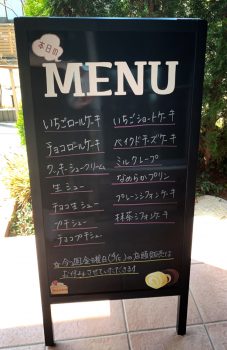 本日の
MENU
いちごロールケーキ
チョコロールケーキ
クッキーシュークリーム
生シュー
チョコ生シュー
プチシュー
チョコプチシュー
いちごショートケーキ
ベイクドチーズケーキ
ミルクレープ
なめらかプリン
プレーンシフォンケーキ
抹茶シフォンケーキ
☆今週金曜日の店頭販売は
お休みさせていただきます